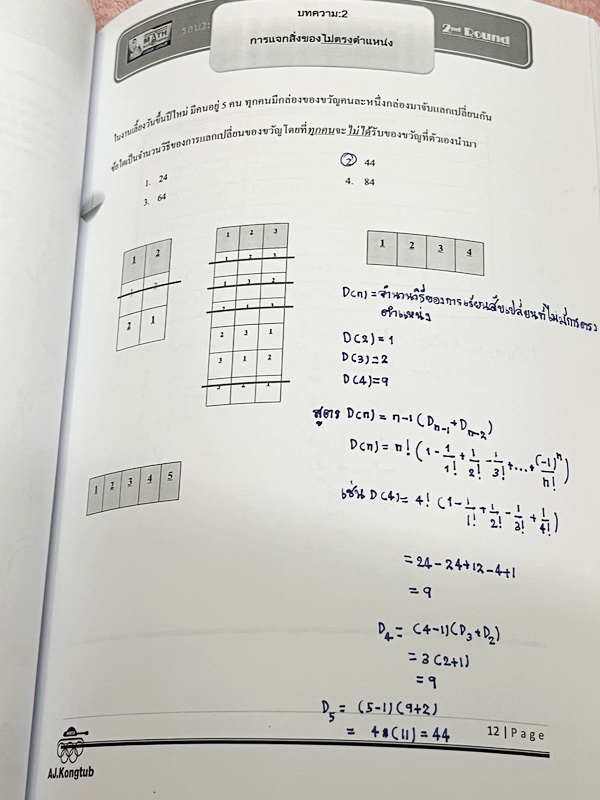 บทความ:2
การแจกสิ่งของไม่ตรงตำแหน่ง
MATH
2nd Round
ในงานเลี้ยงวันขึ้นปีใหม่ มีคนอยู่ 5 คน ทุกคนมีกล่องของขวัญคนละหนึ่งกล่องมาจับแลกเปลี่ยนกัน
ข้อใดเป็นจำนวนวิธีของการแลกเปลี่ยนของขวัญโดยที่ทุกคนจะไม่ได้รับของขวัญที่ตัวเองนำมา
1. 24
2 44
3. 64
4. 84
1 2
2 1
1 2 3
1 2 3
1 3 2
2 1 3
2 3 1
3 1 2
3 2 1
1 2 3 4
D(n) = จำนวนวิธีของการเรียงสับเปลี่ยนที่ไม่มีการตรง
ตำแหน่ง
D(2) = 1
D(3) = 2
D(4) = 9
สูตร D(n) = n-1 (Dn-1 + Dn-2)
D(n) = n! (1 - 1/1! + 1/2! - 1/3! + ... + (-1)^n/n!)
1 2 3 4 5
เช่น D(4) = 4! (1 - 1/1! + 1/2! - 1/3! + 1/4!)
= 24 - 24 + 12 - 4 + 1
= 9
D4 = (4-1)(D3 + D2)
= 3(2+1)
= 9
D5 = (5-1)(9+2)
= 4(11) = 44
12 | Page
AJ.Kongtub